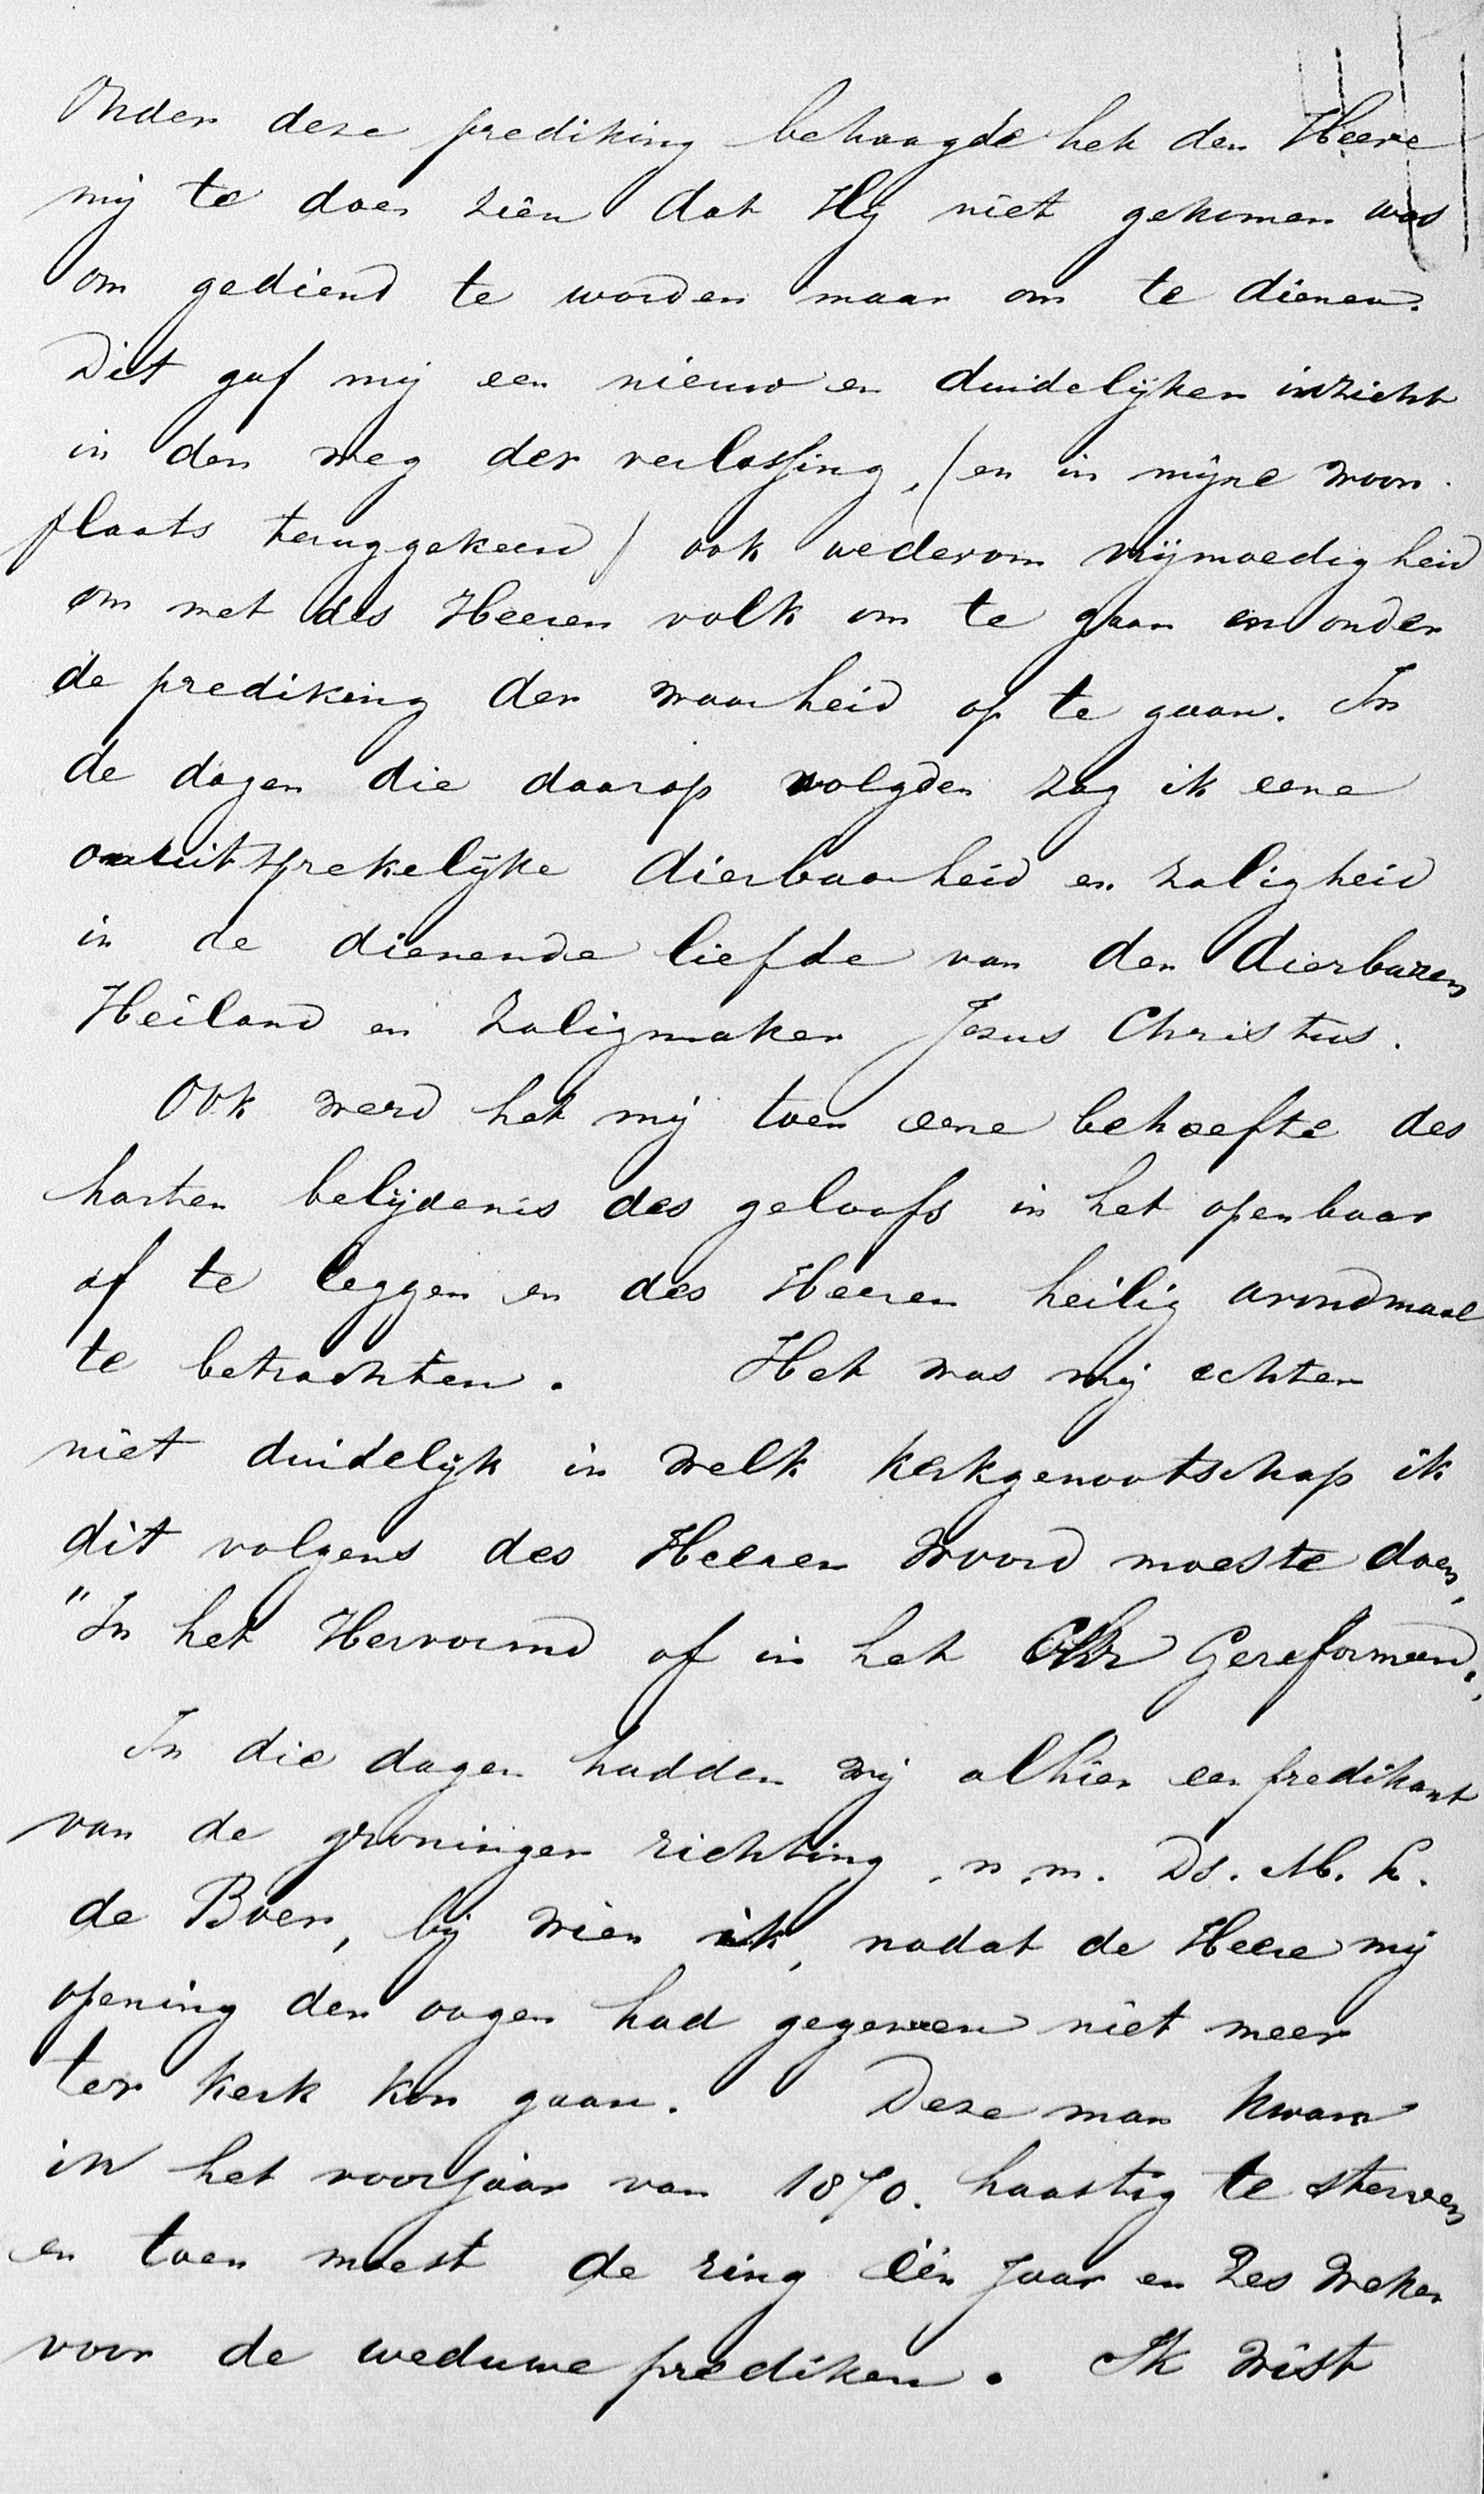 Onder deze prediking behaagde het den Heere
mij te doen zien dat Hij niet gekomen was
om gediend te worden maar om te dienen.
Dit gaf mij een nieuw en duidelijken inzicht
in den weg der verlossing, (en in mijne woon-
plaats teruggekeerd) ook wederom vrijmoedigheid
om met des Heeren volk om te gaan en onder
de prediking der waarheid op te gaan. In
de dagen die daarop volgden zag ik eene
onuitsprekelijke dierbaarheid en zaligheid
in de dienende liefde van den dierbaren
Heiland en Zaligmaker Jezus Christus.
Ook werd het mij toen eene behoefte des
harten belijdenis des geloofs in het openbaar
af te leggen en des Heeren heilig avondmaal
te betrachten. Het was mij echter
niet duidelijk in welk kerkgenootschap ik
dit volgens des Heeren Woord moeste doen,
"In het Hervormd of in het Chr Gereformeerd",
In die dagen hadden wij alhier een predikant
van de groninger richting, n.m. Ds. M. K.
de Boer, bij wien ik, nadat de Heere mij
opening der oogen had gegeven niet meer
ter kerk kon gaan. Deze man kwam
in het voorjaar van 1870. haastig te sterven
en toen moest de ring één jaar en zes weken
voor de weduwe prediken. Ik wist